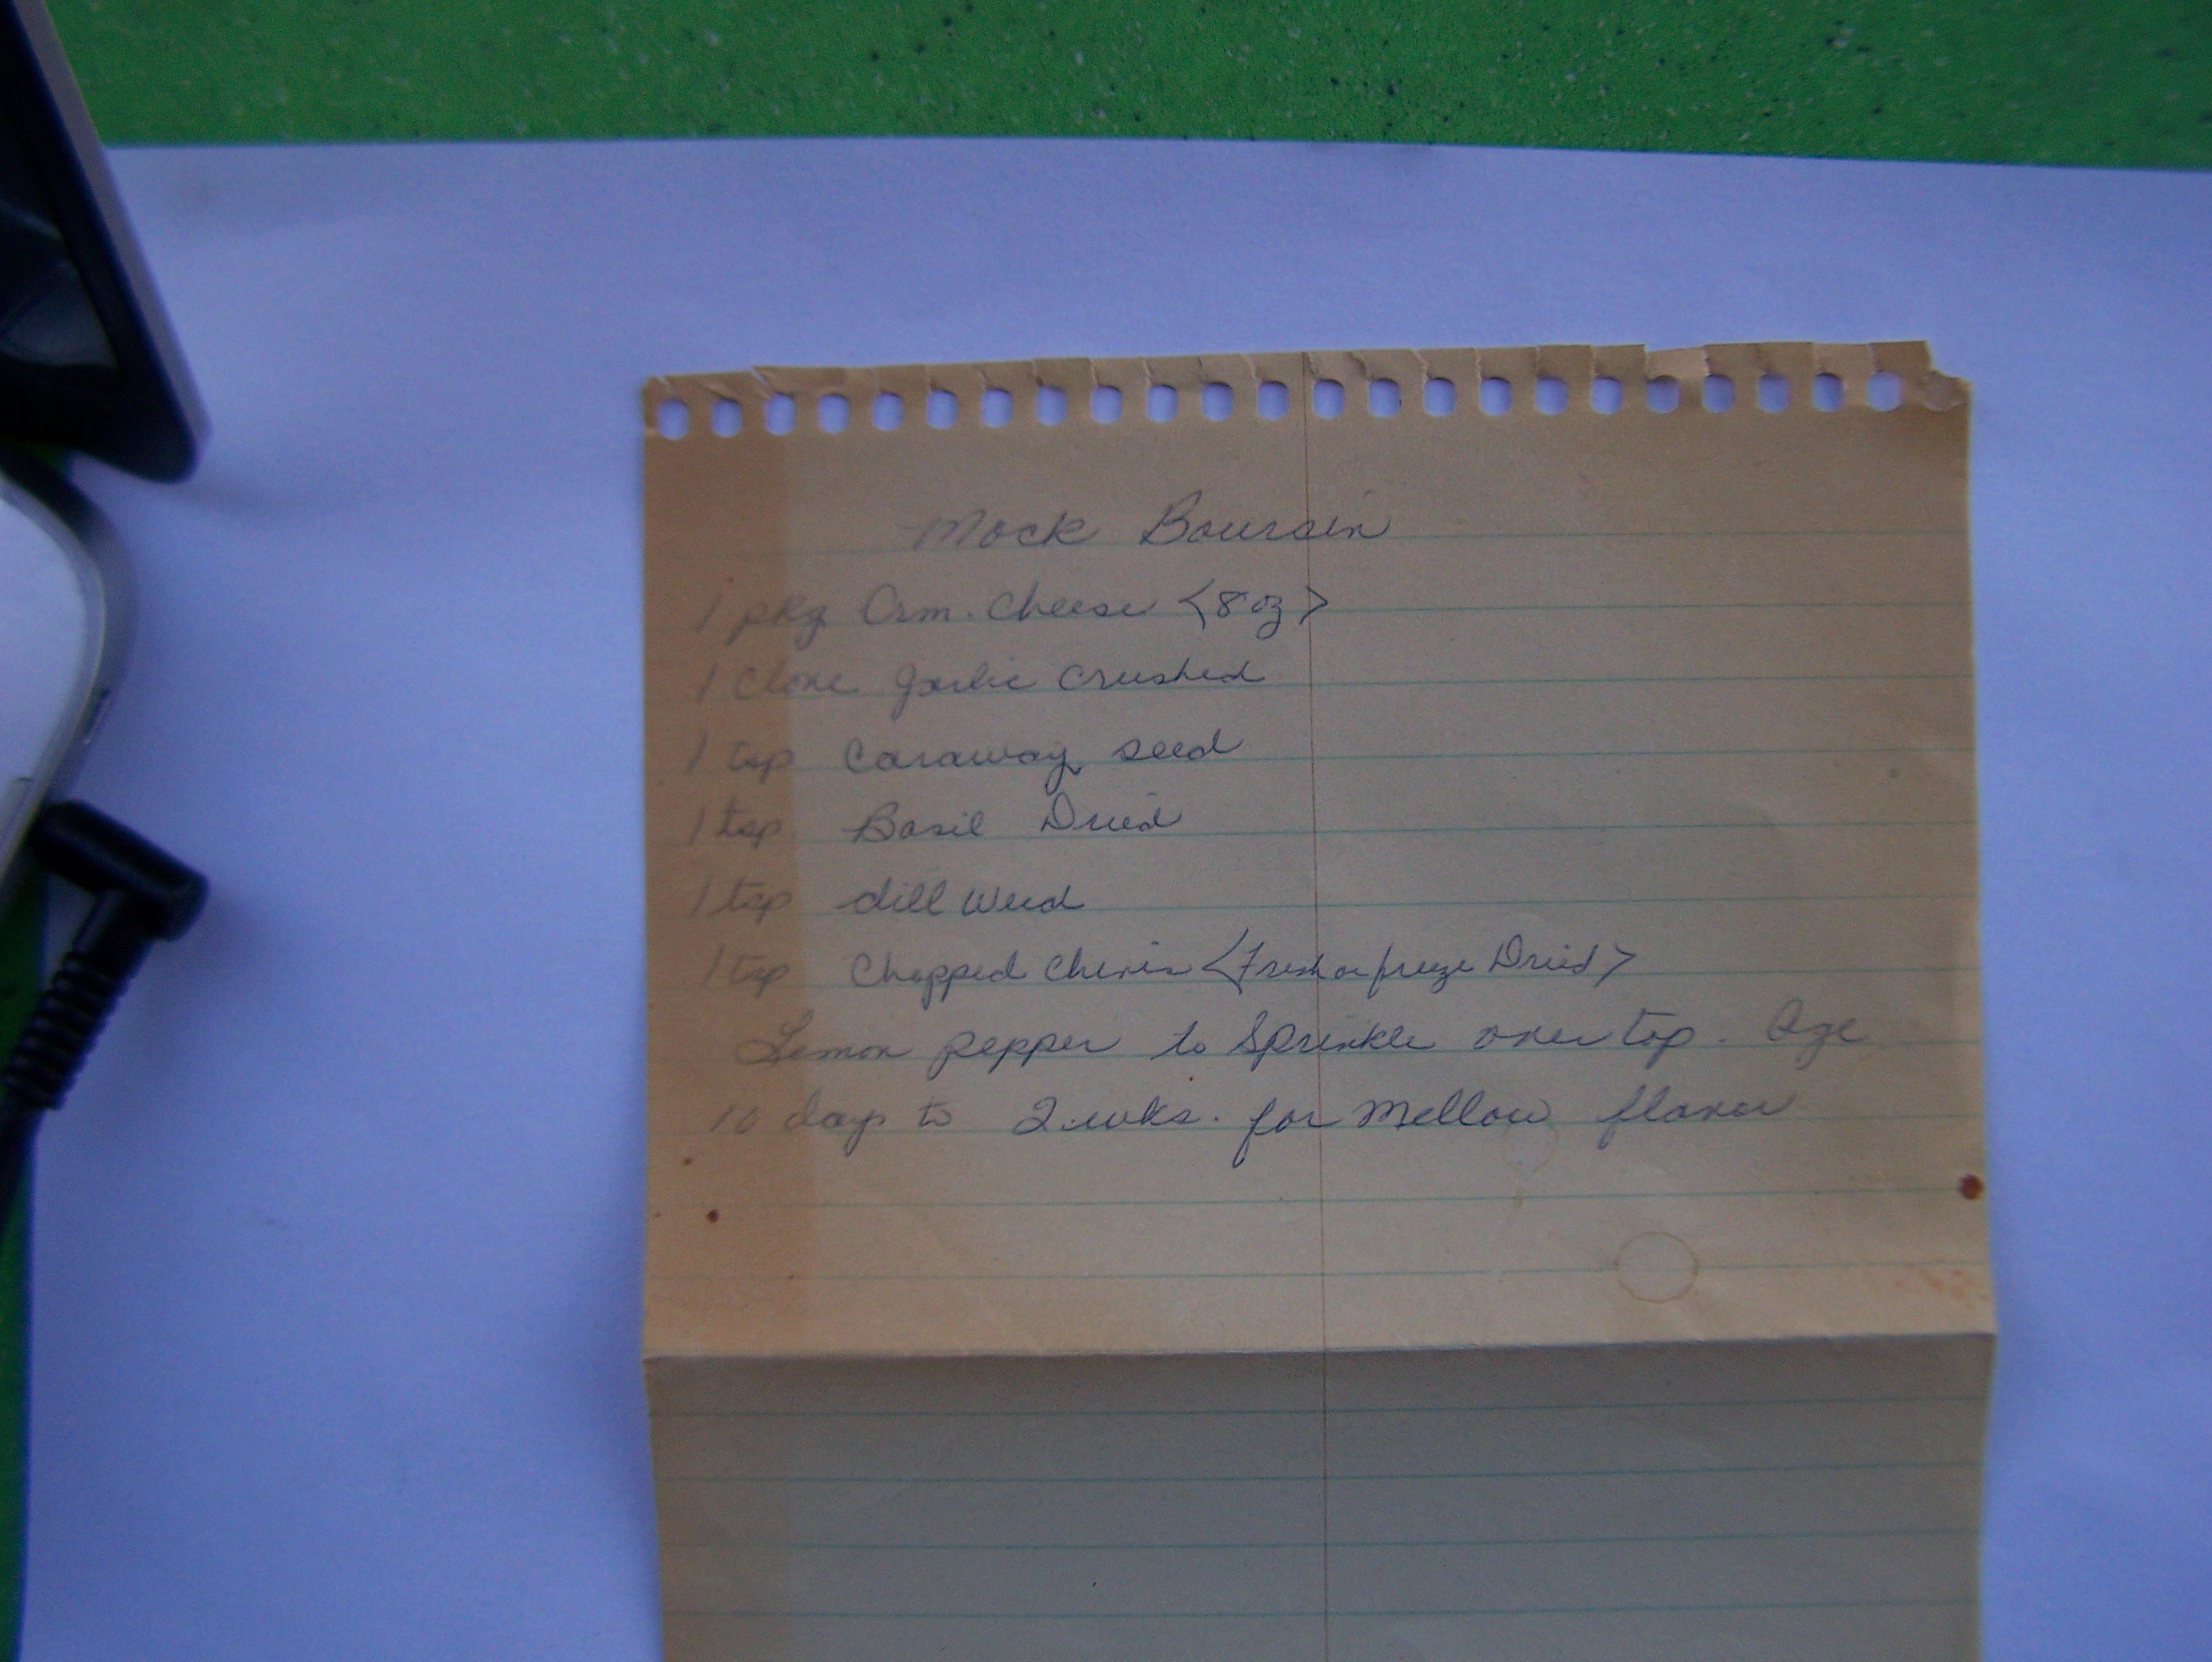 Mock Boursin
1 pkg Crm. Cheese <8 oz>
1 Clove garlic crushed
1 tsp Caraway seed
1 tsp. Basil Dried
1 tsp dill weed
1 tsp Chopped Chives <Fresh or freeze Dried>
Lemon pepper to Sprinkle over top. Age
10 days to 2 wks. for Mellow flavor